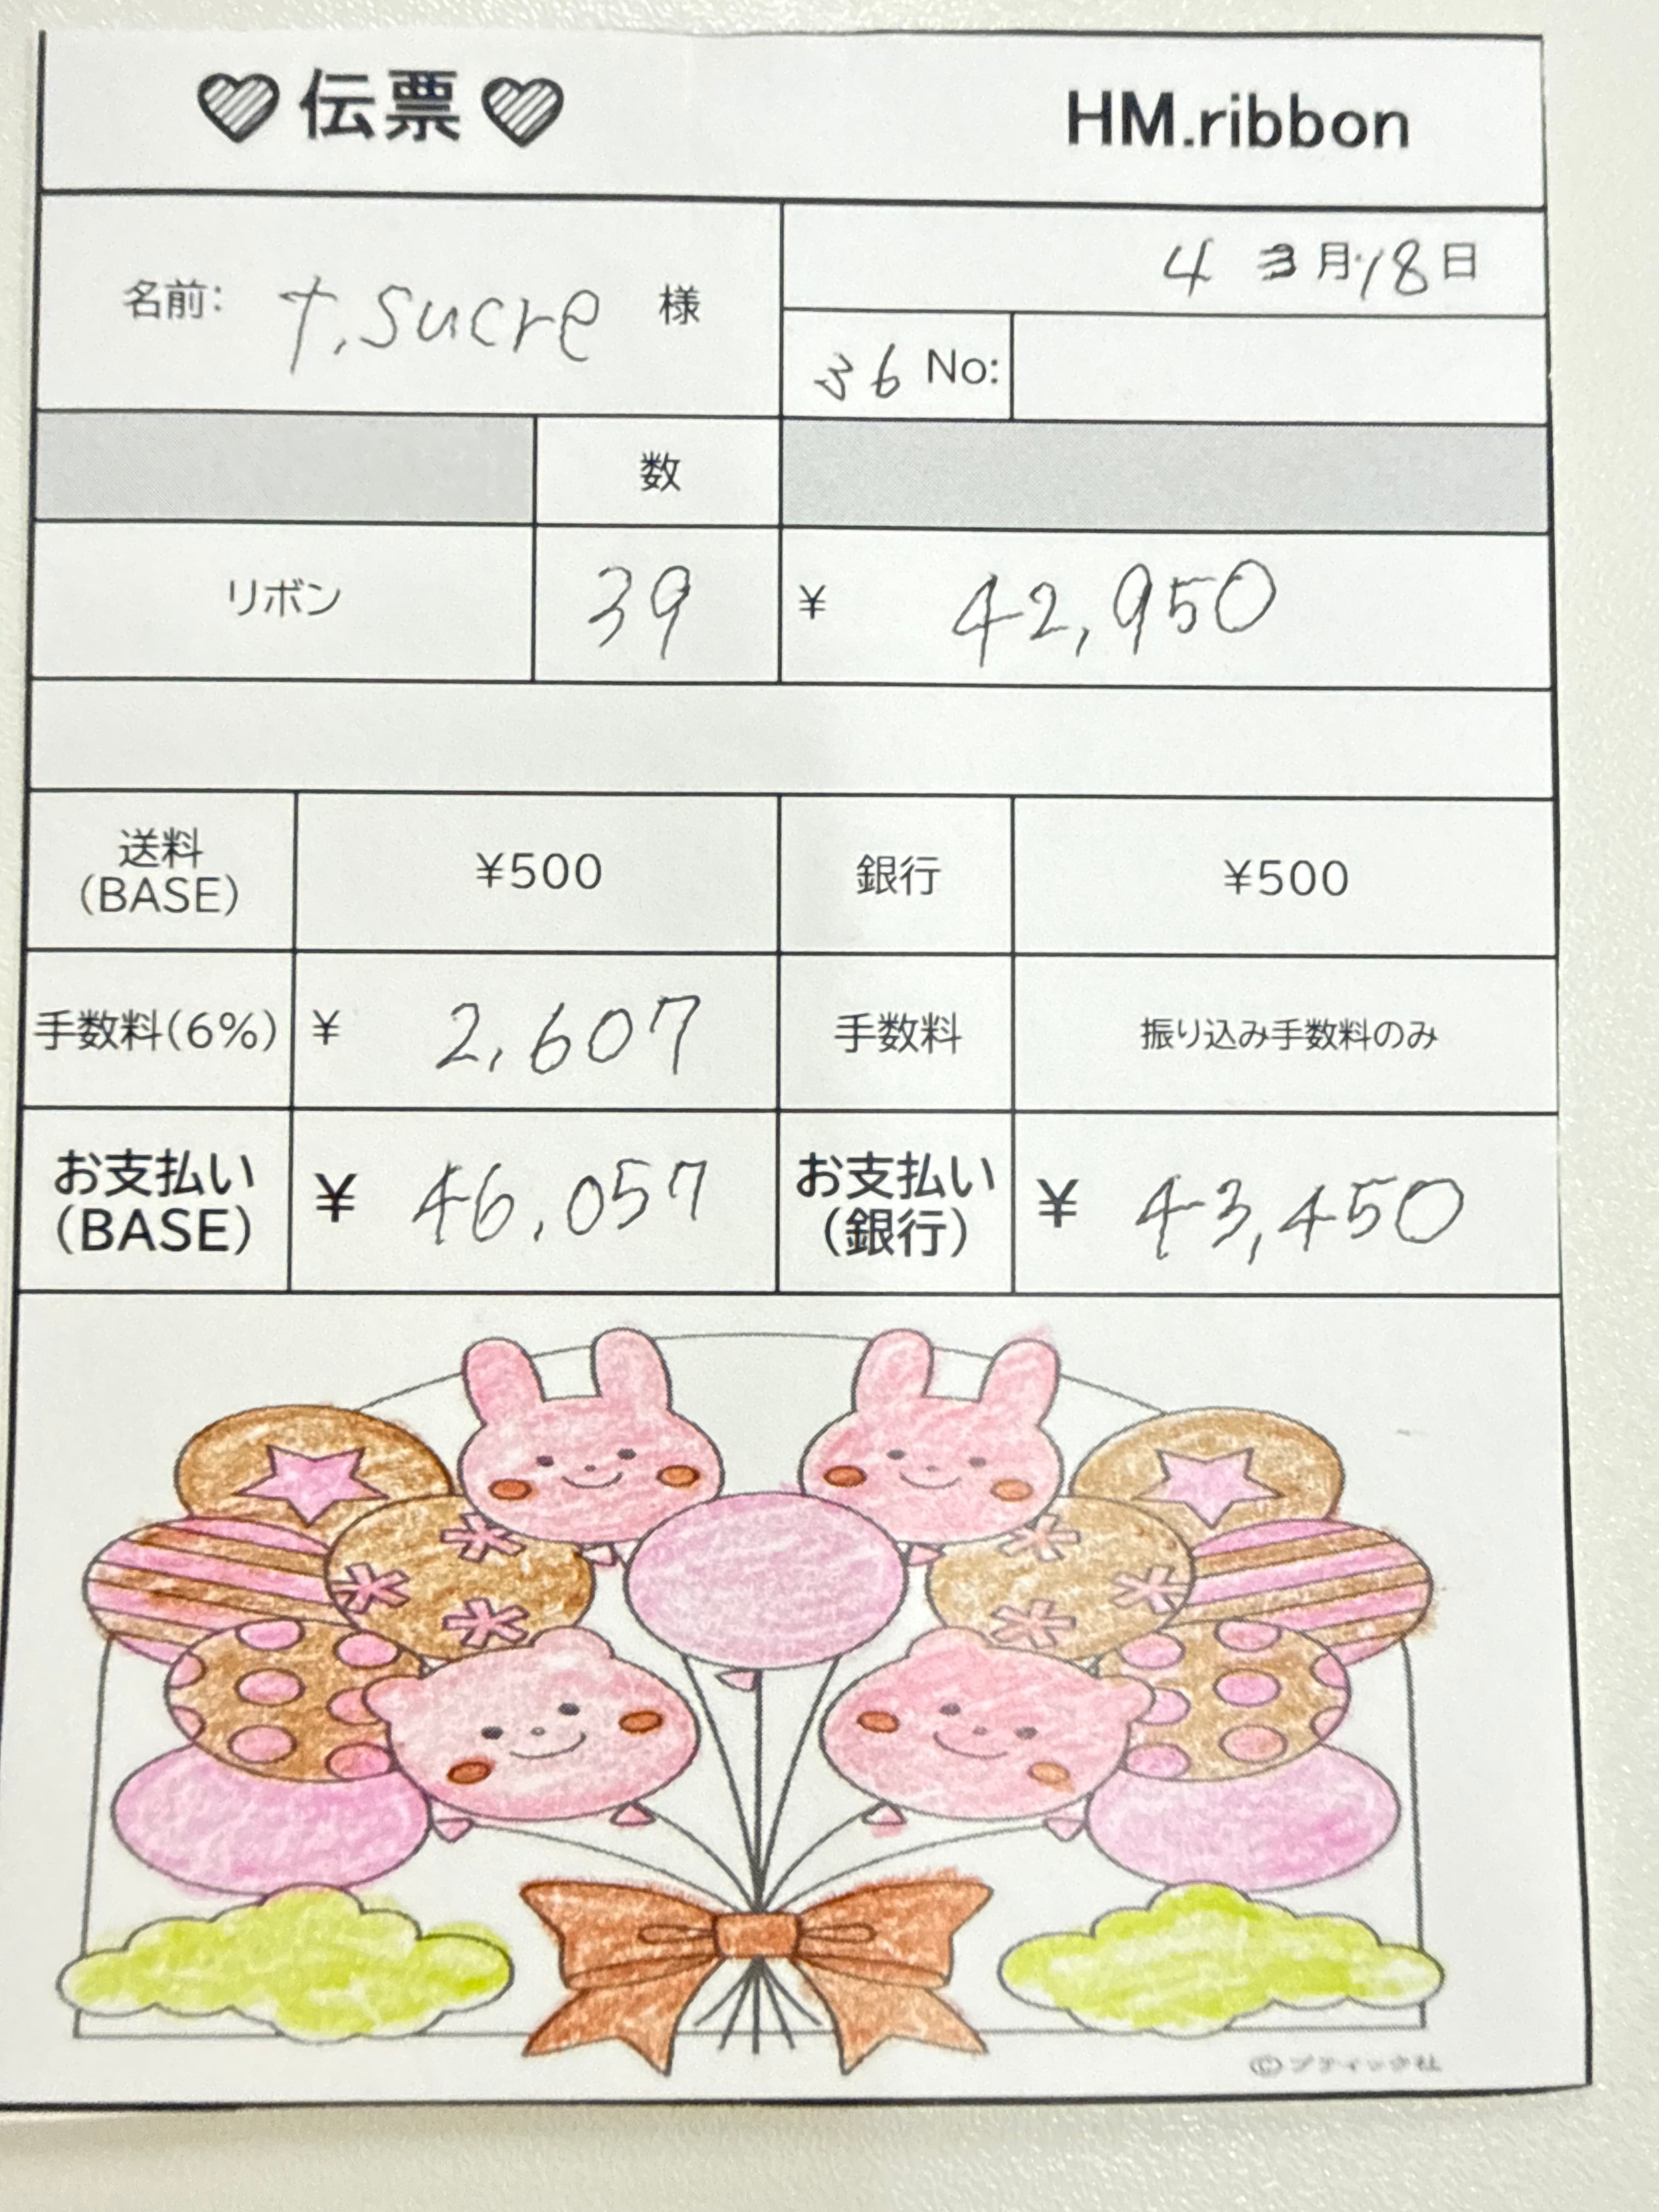 ♡伝票♡ HM.ribbon
名前: t.sucre 様
4 3月18日
36 No:
数
リボン 39 ¥ 42,950
送料 (BASE) ¥500 銀行 ¥500
手数料(6%) ¥ 2,607 手数料 振り込み手数料のみ
お支払い (BASE) ¥ 46,057 お支払い (銀行) ¥ 43,450
©ブティック社